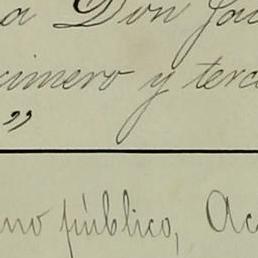 a Don Ja
rimero y terc
"
no público, Ac